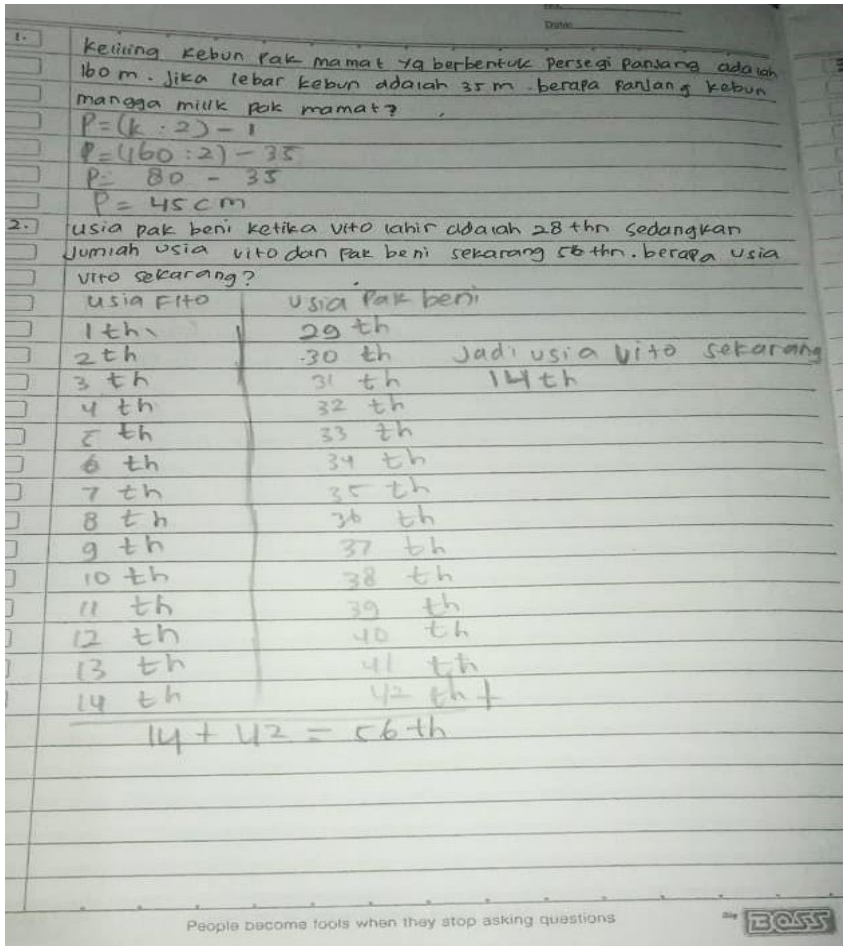 Date:
1. Keliling kebun Pak mamat yg berbentuk Persegi Panjang adalah
160 m. Jika lebar kebun adalah 35 m. berapa Panjang kebun
mangga milik pak mamat?
P=(k : 2) - l
P=(160 : 2) - 35
P= 80 - 35
P = 45 cm
2. usia pak beni ketika vito lahir adalah 28 thn sedangkan
Jumlah usia vito dan Pak beni sekarang 56 thn. berapa usia
vito sekarang?
usia Fito usia Pak beni
1 th 29 th
2 th 30 th Jadi usia vito sekarang
3 th 31 th 14 th
4 th 32 th
5 th 33 th
6 th 34 th
7 th 35 th
8 th 36 th
9 th 37 th
10 th 38 th
11 th 39 th
12 th 40 th
13 th 41 th
14 th 42 th +
14 + 42 = 56 th
People become fools when they stop asking questions
Big BOSS